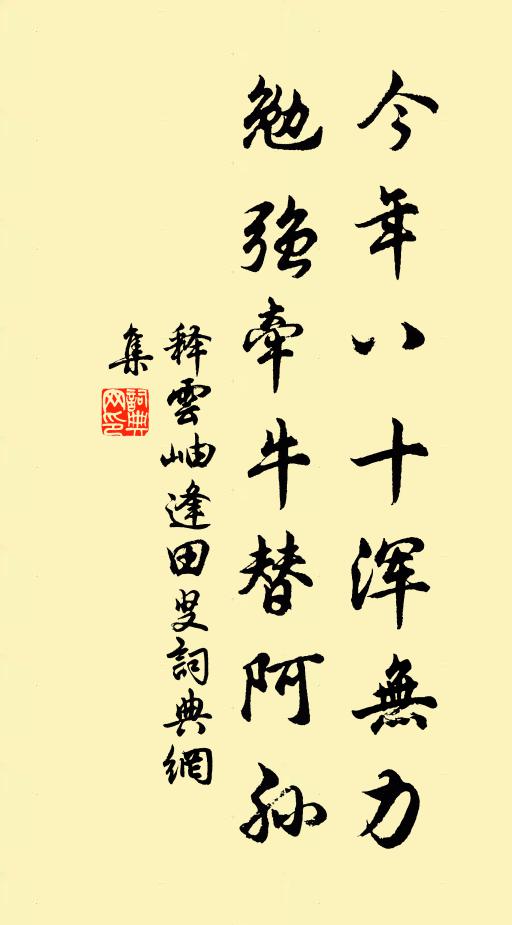 今年八十浑無力
勉强牽牛替阿孙
释雲岫逢田叟詞典網
集
詞典
网印